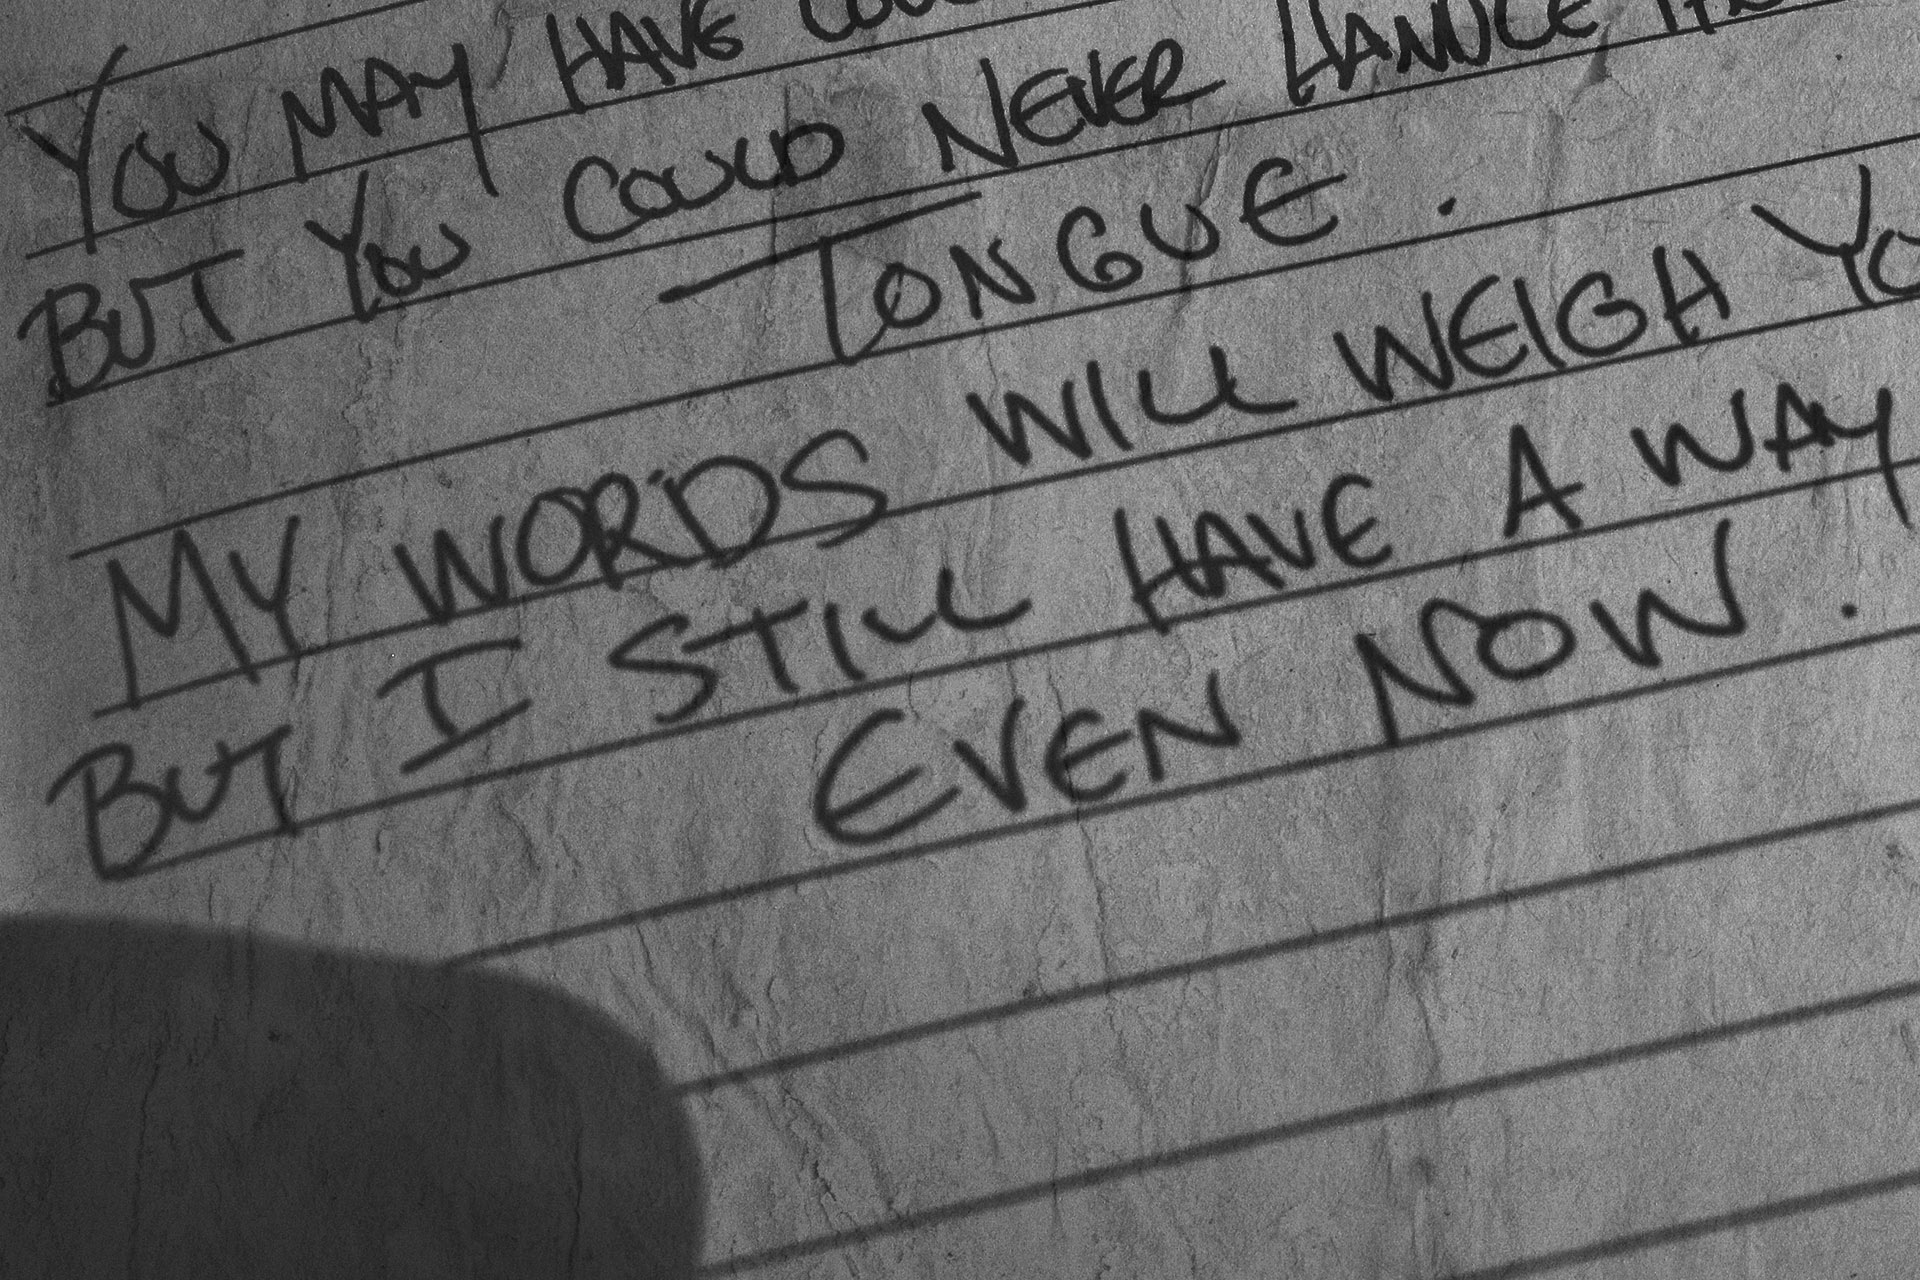 YOU MAY HAVE
BUT YOU COULD NEVER HANDLE
TONGUE.
MY WORDS WILL WEIGH
BUT I STILL HAVE A WAY
EVEN NOW.